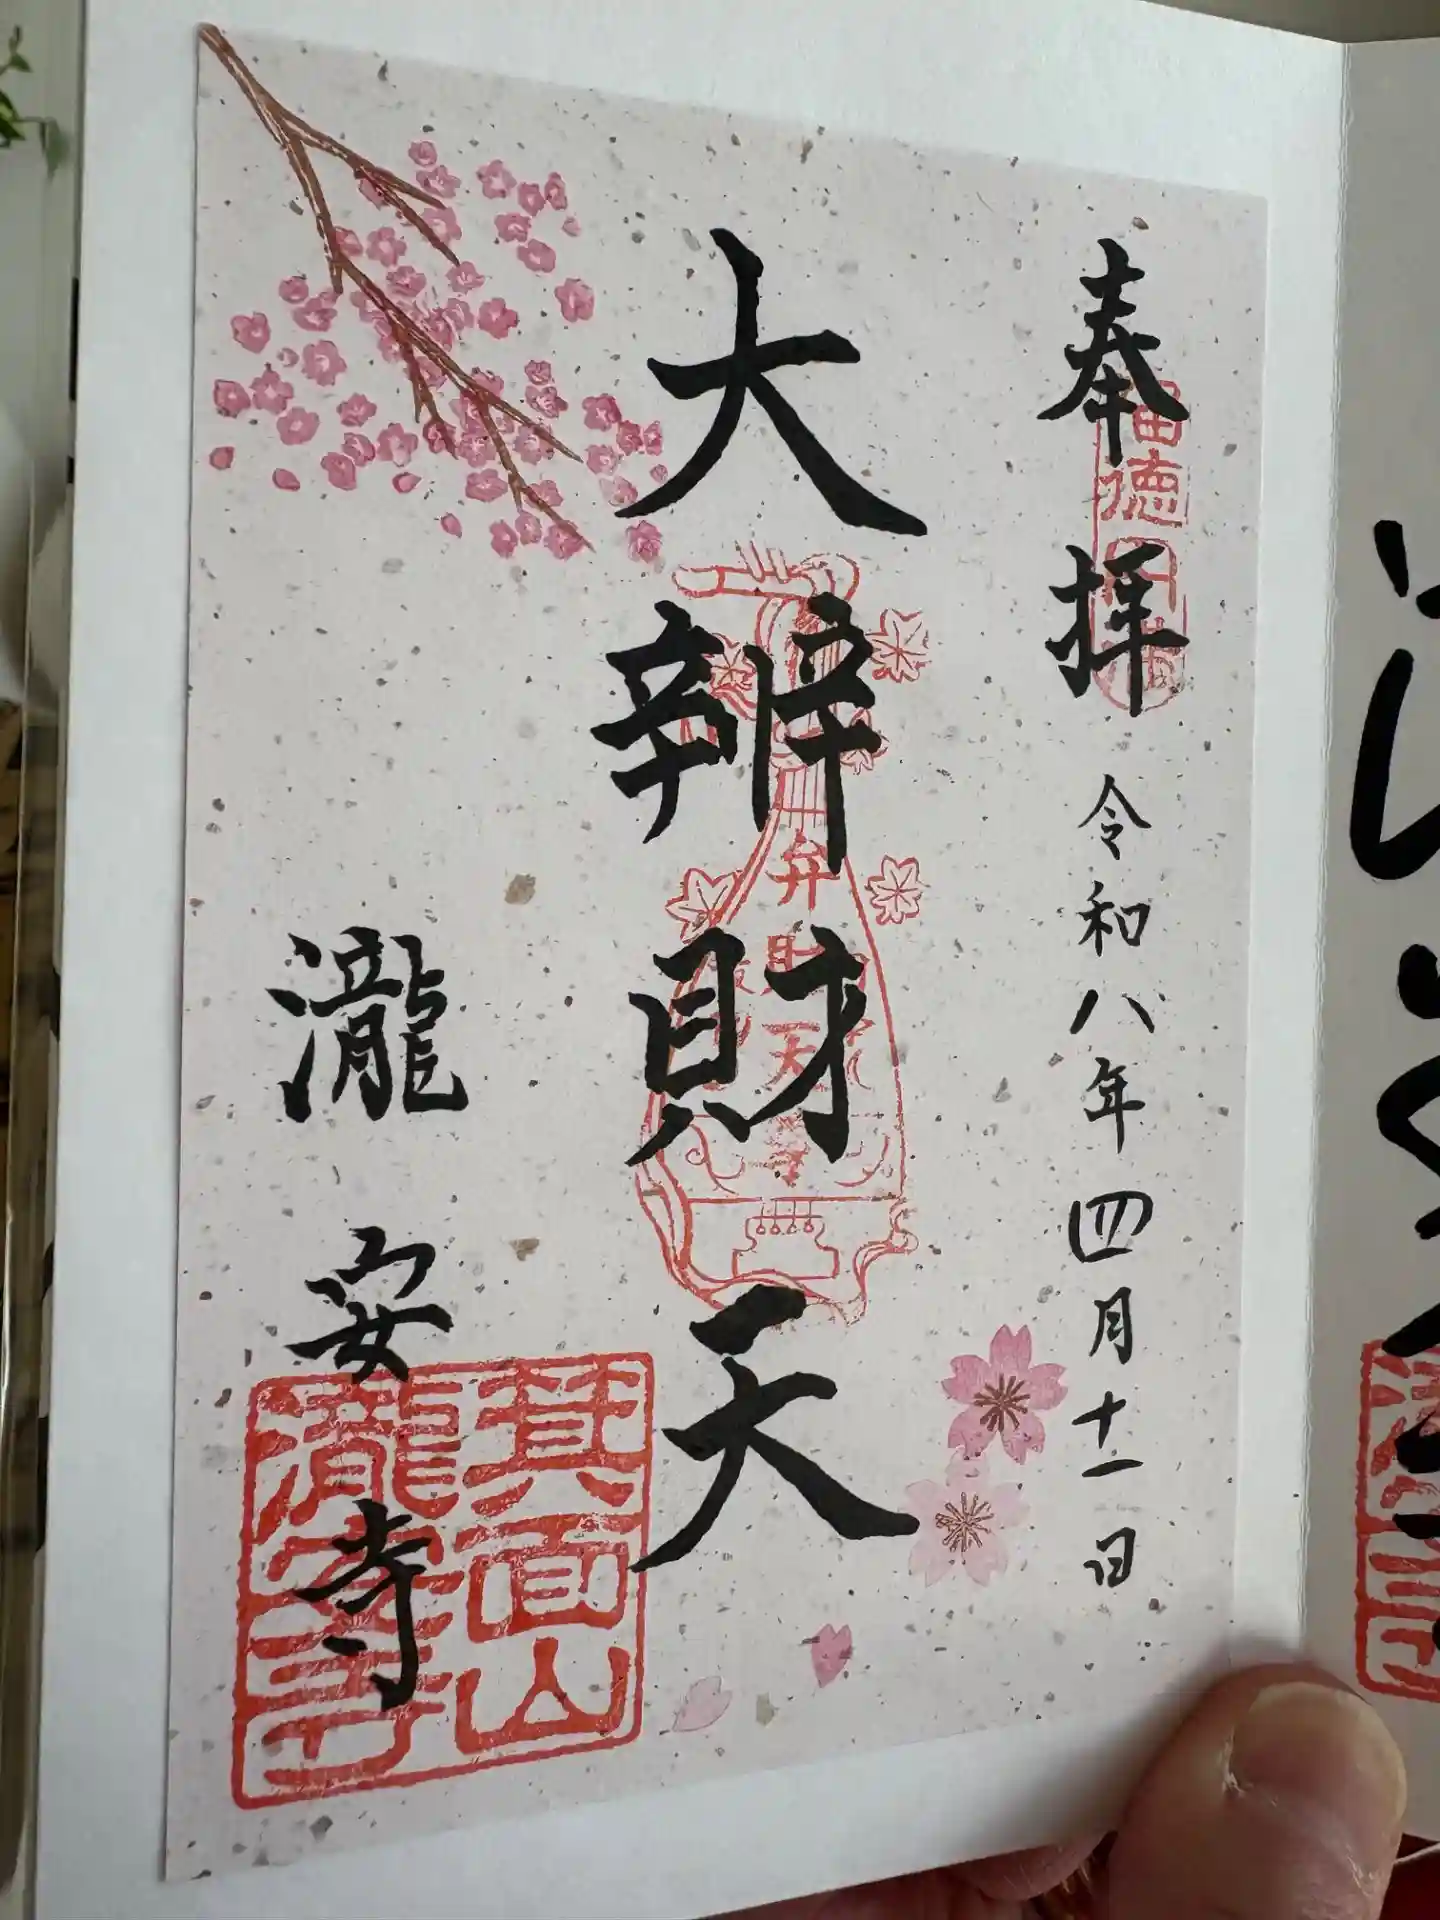 奉拝
令和八年四月十一日
大辨財天
弁財天
瀧安寺
箕面山
瀧安寺